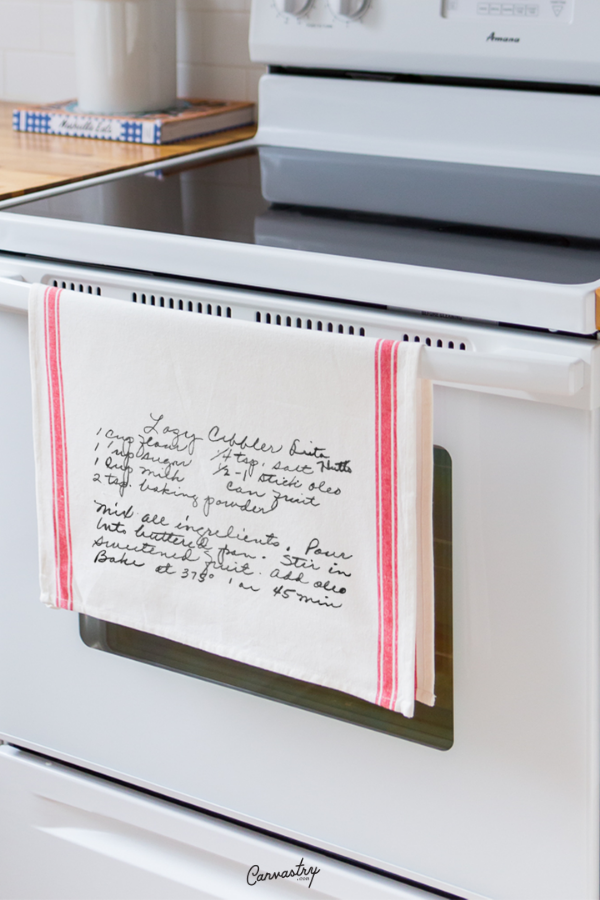 Amana
Lazy Cobbler
1 cup flour 1/4 tsp. salt
1 cup sugar 1/2-1 stick oleo
1 cup milk can fruit
2 tsp. baking powder
Mix all ingredients. Pour
into buttered pan. Stir in
sweetened fruit. Add oleo
Bake at 375° 45 min
Canvastry
.com